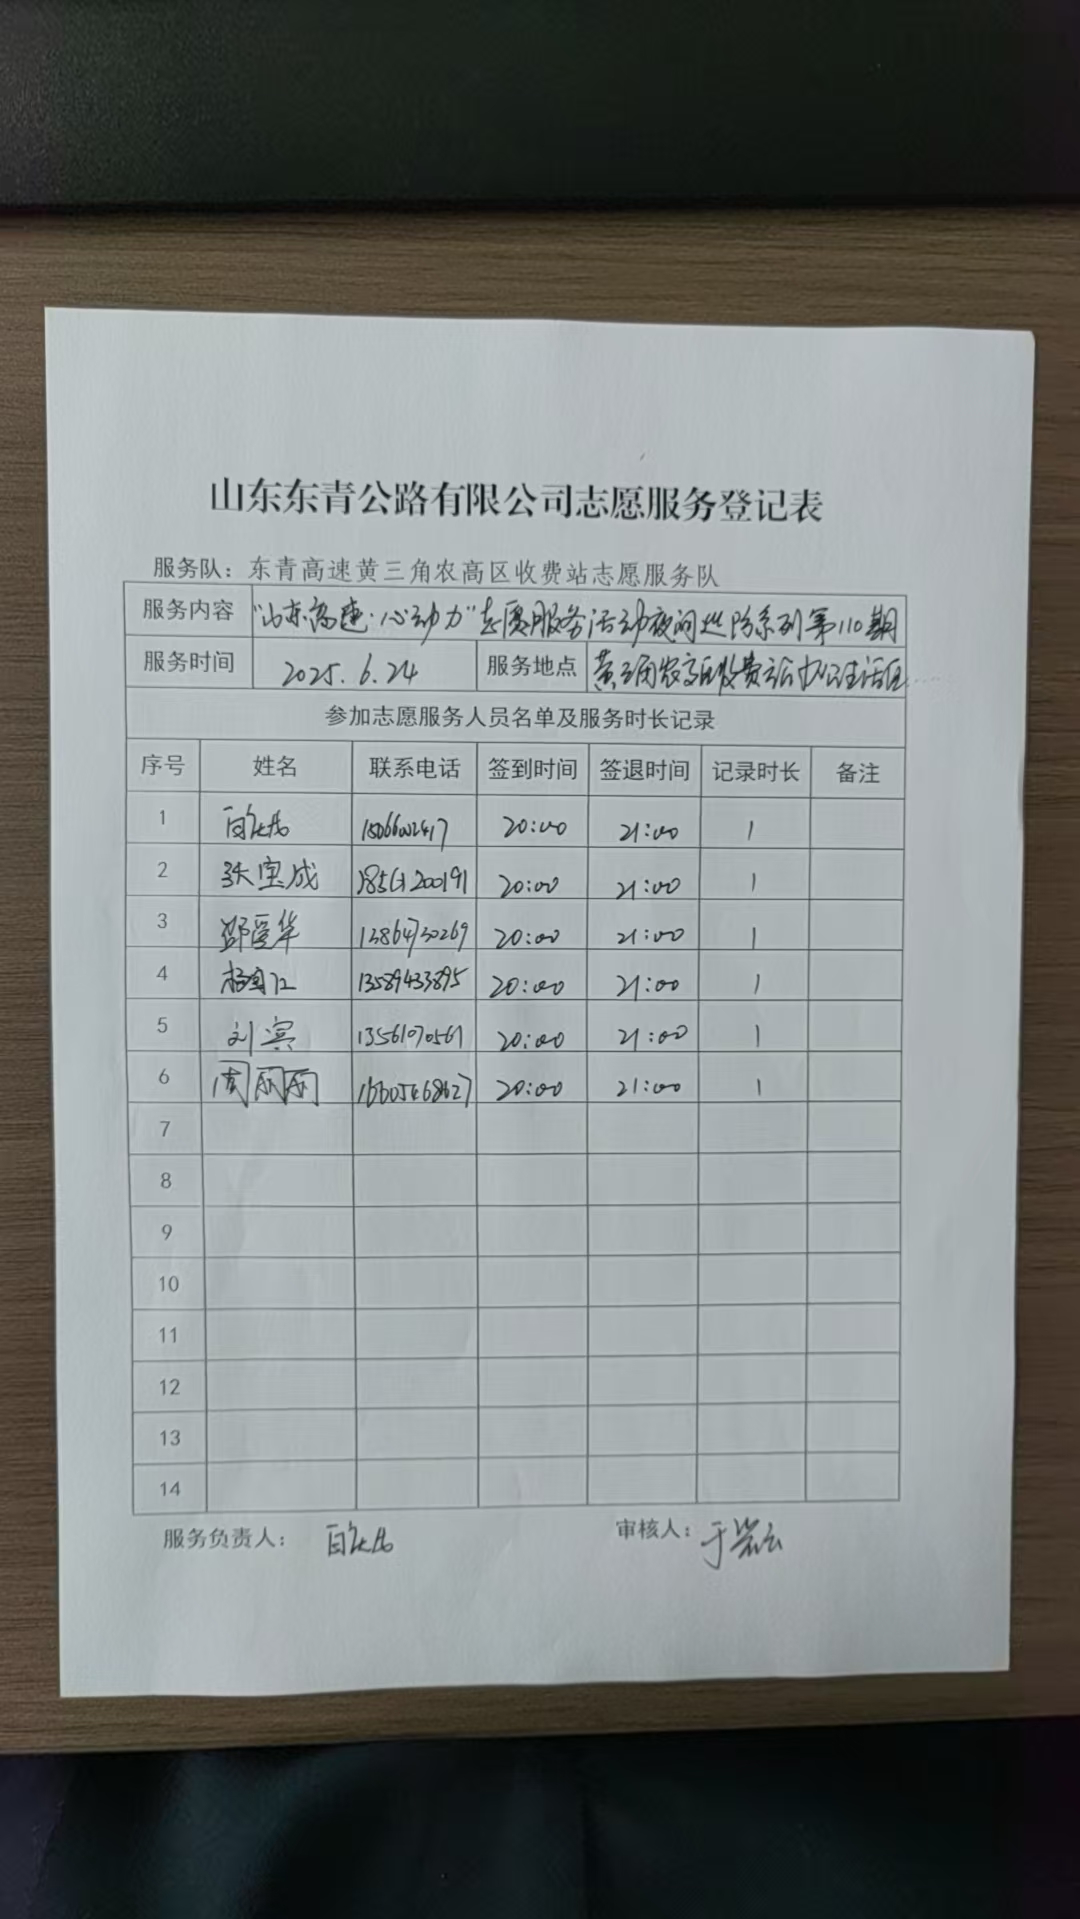 山东东青公路有限公司志愿服务登记表
服务队：东青高速黄三角农高区收费站志愿服务队
服务内容 "山东高速·心动力"志愿服务活动夜间巡防系列第110期
服务时间 2025.6.24 服务地点 黄三角农高区收费站办公生活区
参加志愿服务人员名单及服务时长记录
序号 姓名 联系电话 签到时间 签退时间 记录时长 备注
1 20:00 21:00 1
2 张宝成 18561200191 20:00 21:00 1
3 邵爱华 13864730269 20:00 21:00 1
4 13589433895 20:00 21:00 1
5 刘宾 13561070561 20:00 21:00 1
6 周丽丽 16605468627 20:00 21:00 1
7
8
9
10
11
12
13
14
服务负责人：
审核人：于